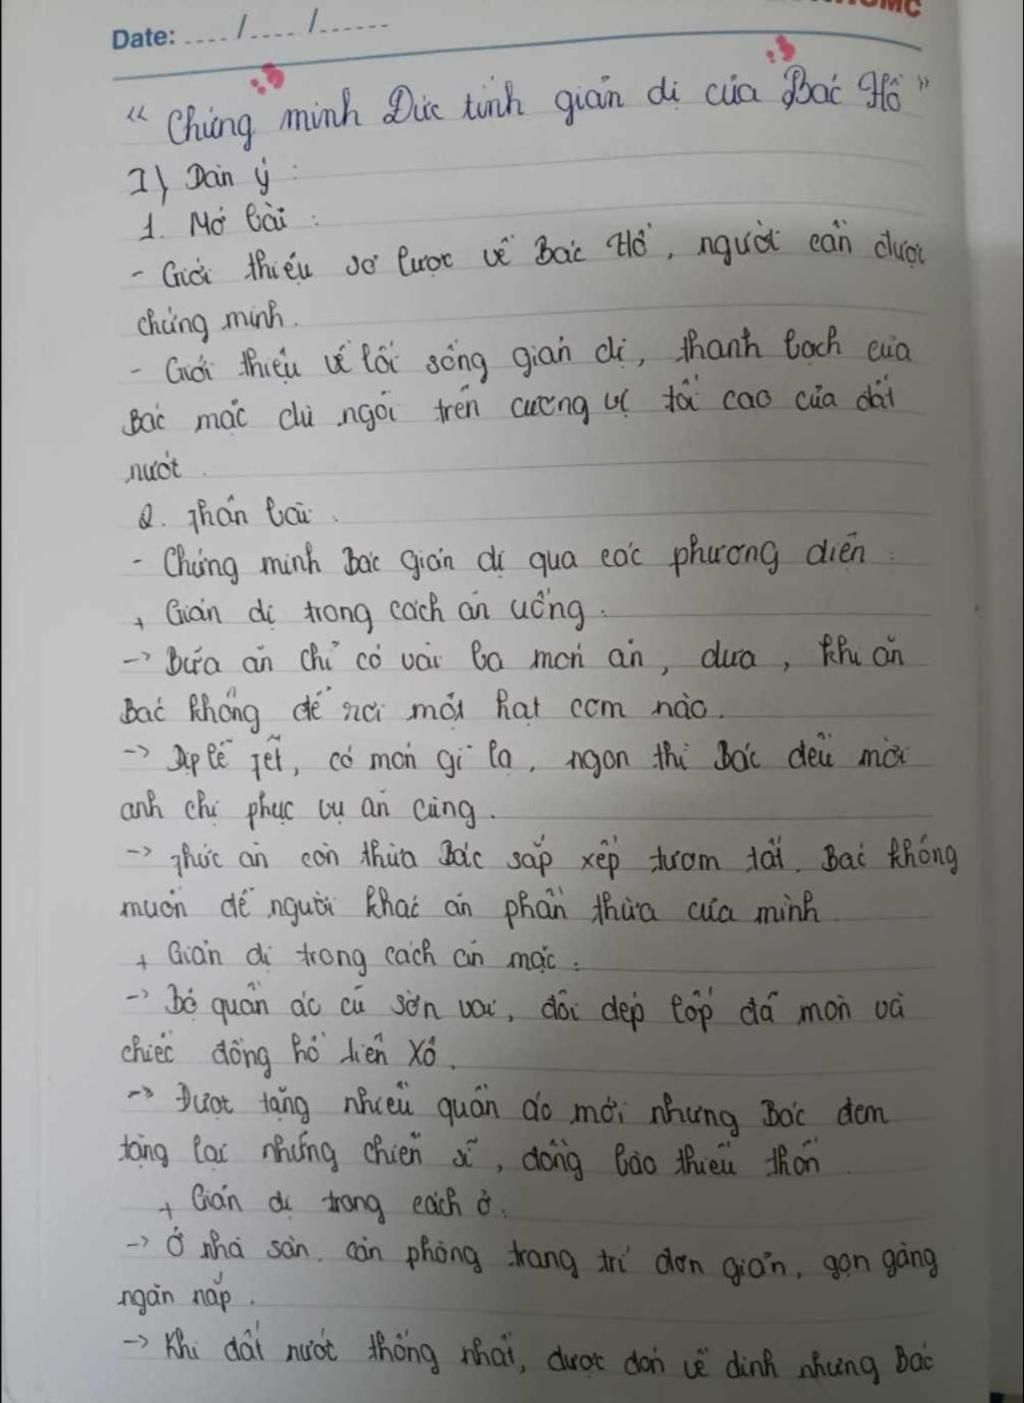 Date: ..../..../......
“Chứng minh Đức tính giản dị của Bác Hồ”
I) Dàn ý :
1. Mở bài :
- Giới thiệu sơ lược về Bác Hồ, người cần được
chứng minh.
- Giới thiệu về lối sống giản dị, thanh bạch của
Bác mặc dù ngồi trên cương vị tối cao của đất
nước.
2. Thân bài.
- Chứng minh Bác giản dị qua các phương diện :
+ Giản dị trong cách ăn uống.
-> Bữa ăn chỉ có vài ba món ăn, dưa, khi ăn
Bác không để rơi một hạt cơm nào.
-> Dịp lễ Tết, có món gì lạ, ngon thì Bác đều mời
anh chị phục vụ ăn cùng.
-> Thức ăn còn thừa Bác sắp xếp tươm tất. Bác không
muốn để người khác ăn phần thừa của mình.
+ Giản dị trong cách ăn mặc :
-> Bộ quần áo cũ sờn vai, đôi dép lốp đã mòn và
chiếc đồng hồ Liên Xô.
-> Được tặng nhiều quần áo mới nhưng Bác đem
tặng lại những chiến sĩ, đồng bào thiếu thốn.
+ Giản dị trong cách ở.
-> Ở nhà sàn. căn phòng trang trí đơn giản, gọn gàng
ngăn nắp.
-> Khi đất nước thống nhất, được đón về dinh nhưng Bác